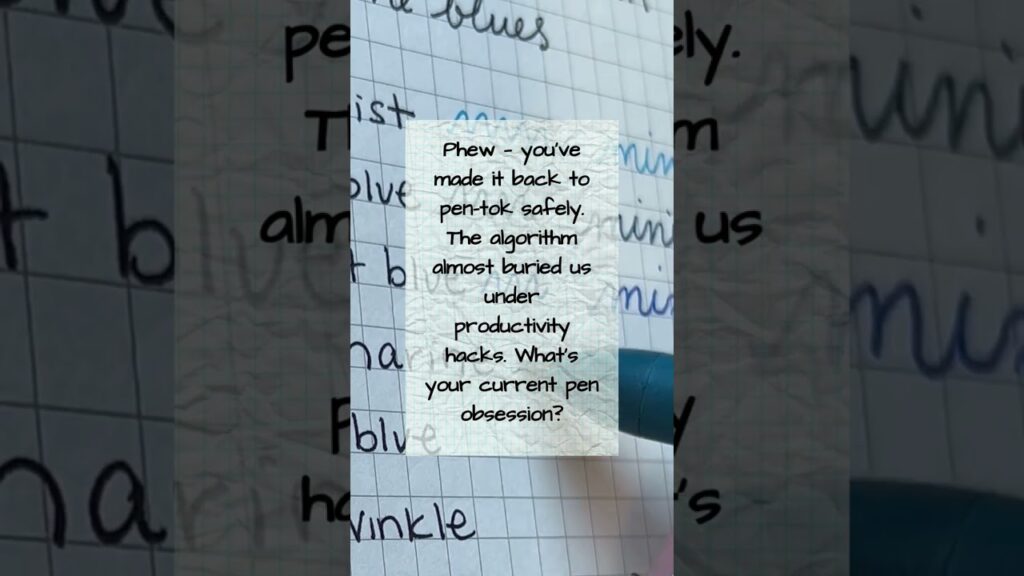 blues
Phew - you've
made it back to
pen-tok safely.
The algorithm
almost buried us
under
productivity
hacks. What's
your current pen
obsession?
ist
blue
blue
blue
winkle
us